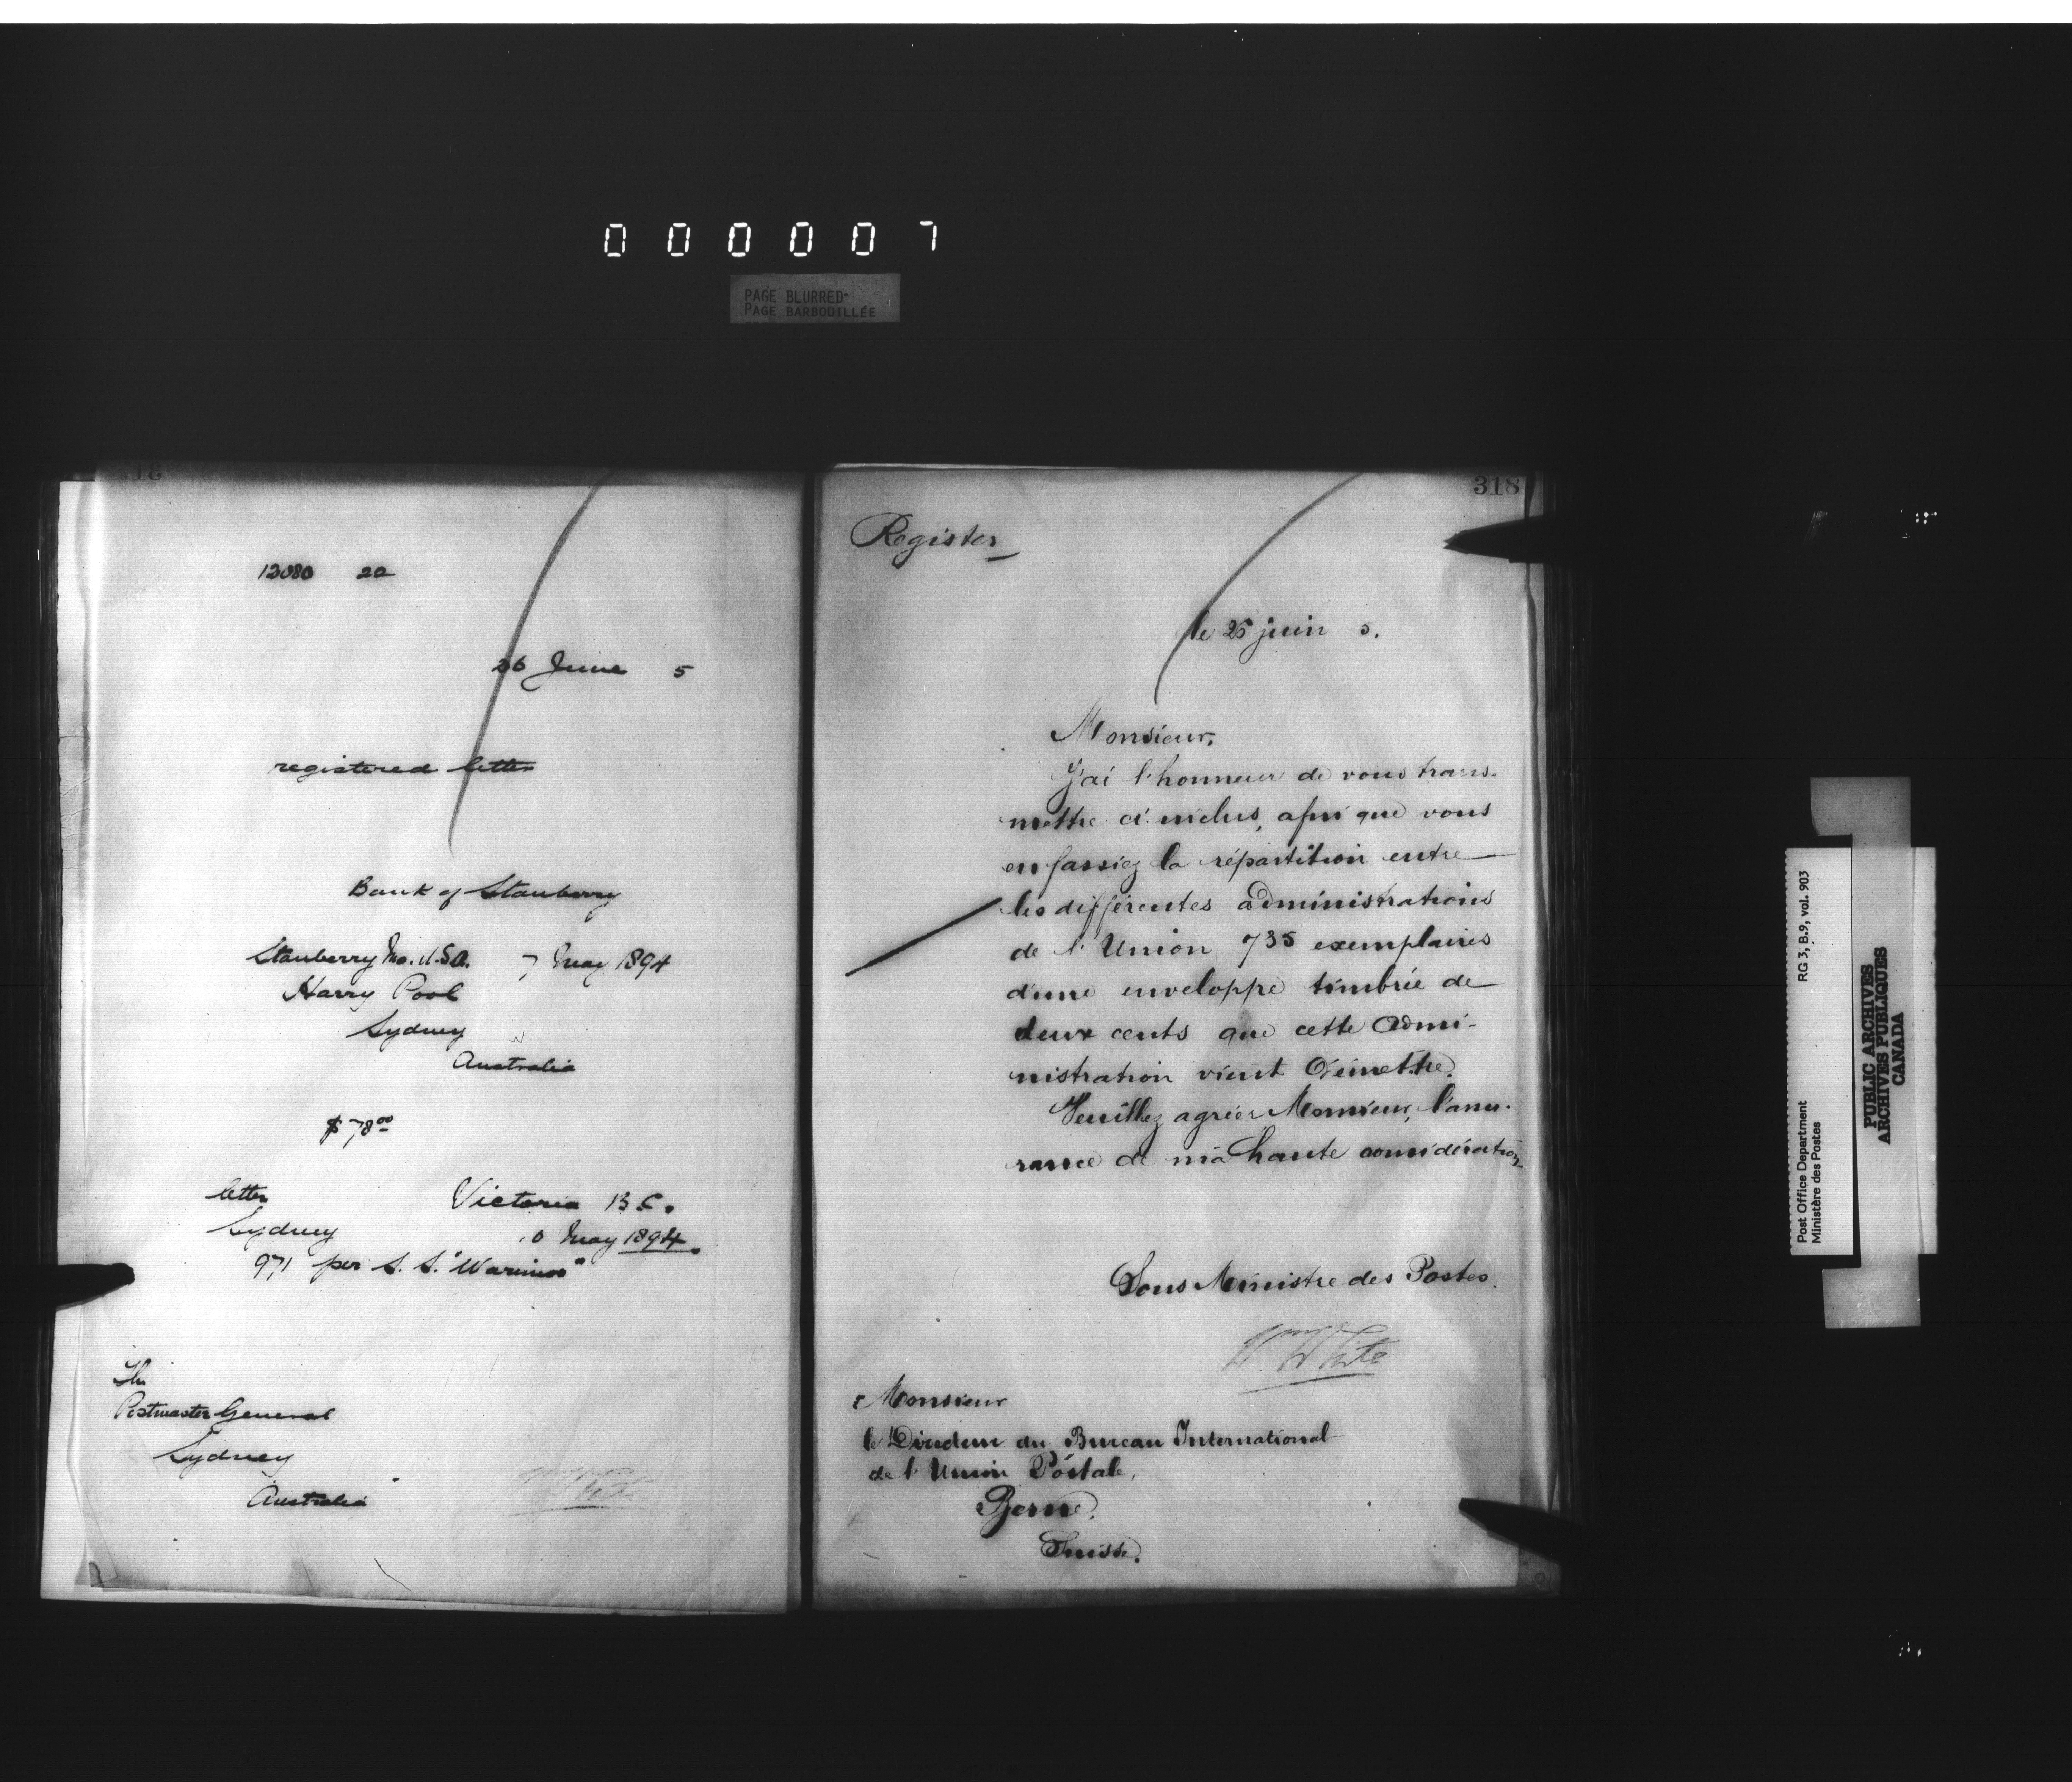 000007
PAGE BLURRED-
PAGE BARBOUILLÉE
13080 20
26 June 5
registered letter
Bank of Stanberry
Stanberry Mo. U.S.A. 7 May 1894
Harry Pool
Sydney
Australia
$78.00
letter Victoria B.C.
Sydney May 1894.
971 per S.S. "Warrimoo"
The
Postmaster General
Sydney
Australia
318
Register
le 26 juin 5.
Monsieur,
J'ai l'honneur de vous trans-
mettre ci-inclus, afin que vous
en fassiez la répartition entre
les différentes administrations
de l'Union 735 exemplaires
d'une enveloppe timbrée de
deux cents que cette Admi-
nistration vient d'émettre.
Veuillez agréer Monsieur, l'assu-
rance de ma haute considération
Sous Ministre des Postes.
Wm White
Monsieur
le Directeur du Bureau International
de l'Union Postale,
Berne,
Suisse.
Post Office Department
Ministère des Postes
RG 3, B.9, vol. 903
PUBLIC ARCHIVES
ARCHIVES PUBLIQUES
CANADA